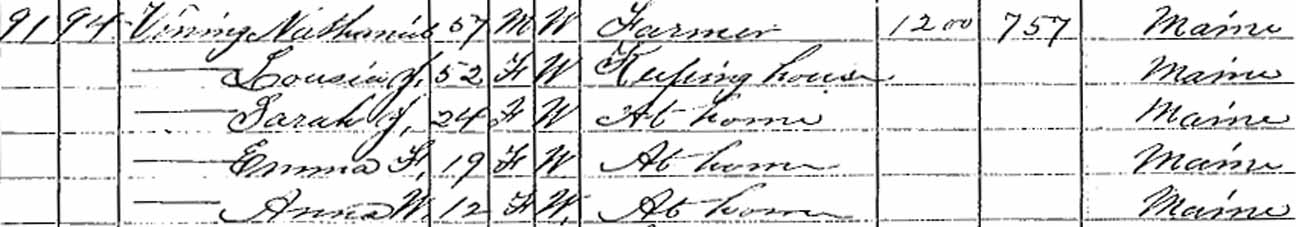 91 94 Vining Nathaniel 57 M W Farmer 1200 757 Maine
Lousia J, 52 F W Keeping house Maine
Sarah J, 24 F W At home Maine
Emma F, 19 F W At home Maine
Anna W, 12 F W At home Maine